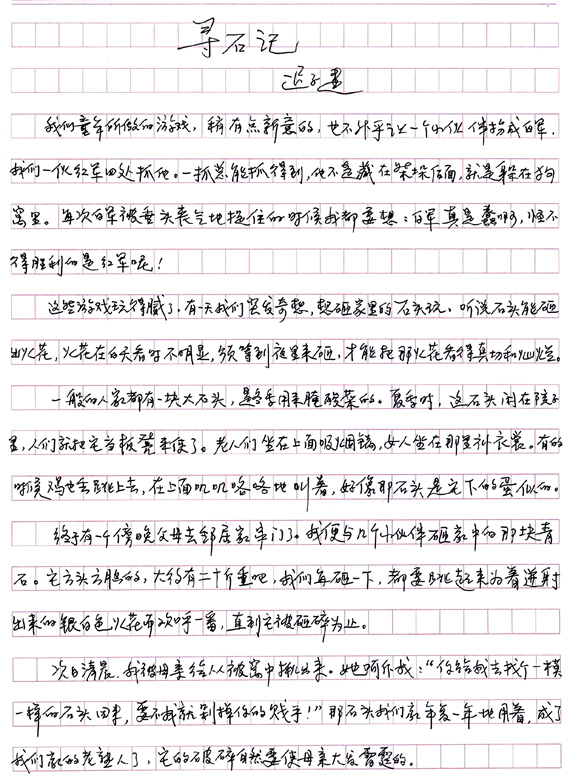 寻石记
迟子建
我们童年所做的游戏，稍有点新意的，也不外乎让一个小伙伴扮成白军，
我们一伙红军四处抓他。一抓总能抓得到，他不是藏在柴垛后面，就是躲在狗
窝里。每次白军被垂头丧气地捉住的时候我都要想：白军真是蠢啊，怪不
得胜利的是红军呢！
这些游戏玩得腻了，有一天我们突发奇想，想砸家里的石头玩。听说石头能砸
出火花，火花在白天看时不明显，须等到夜里来砸，才能把那火花看得真切和灿烂。
一般的人家都有一块大石头，是冬季用来腌酸菜的。夏季时，这石头闲在院子
里，人们就把它当板凳来使了。老人们坐在上面吸烟锅，女人坐在那里补衣裳。有的
时候鸡也会跳上去，在上面叽叽咯咯地叫着，好像那石头是它下的蛋似的。
终于有一个傍晚父母去邻居家串门了。我便与几个小伙伴砸家中的那块青
石。它方头方脑的，大约有二十斤重吧，我们每砸一下，都要跳起来为着迸射
出来的银白色火花而欢呼一番，直到它被砸碎为止。
次日清晨，我被母亲给从被窝中揪出来。她呵斥我：“你给我去找个一模
一样的石头回来，要不我就剁掉你的贱手！”那石头我们家年复一年地用着，成了
我们家的老熟人了，它的破碎自然要使母亲大发雷霆的。